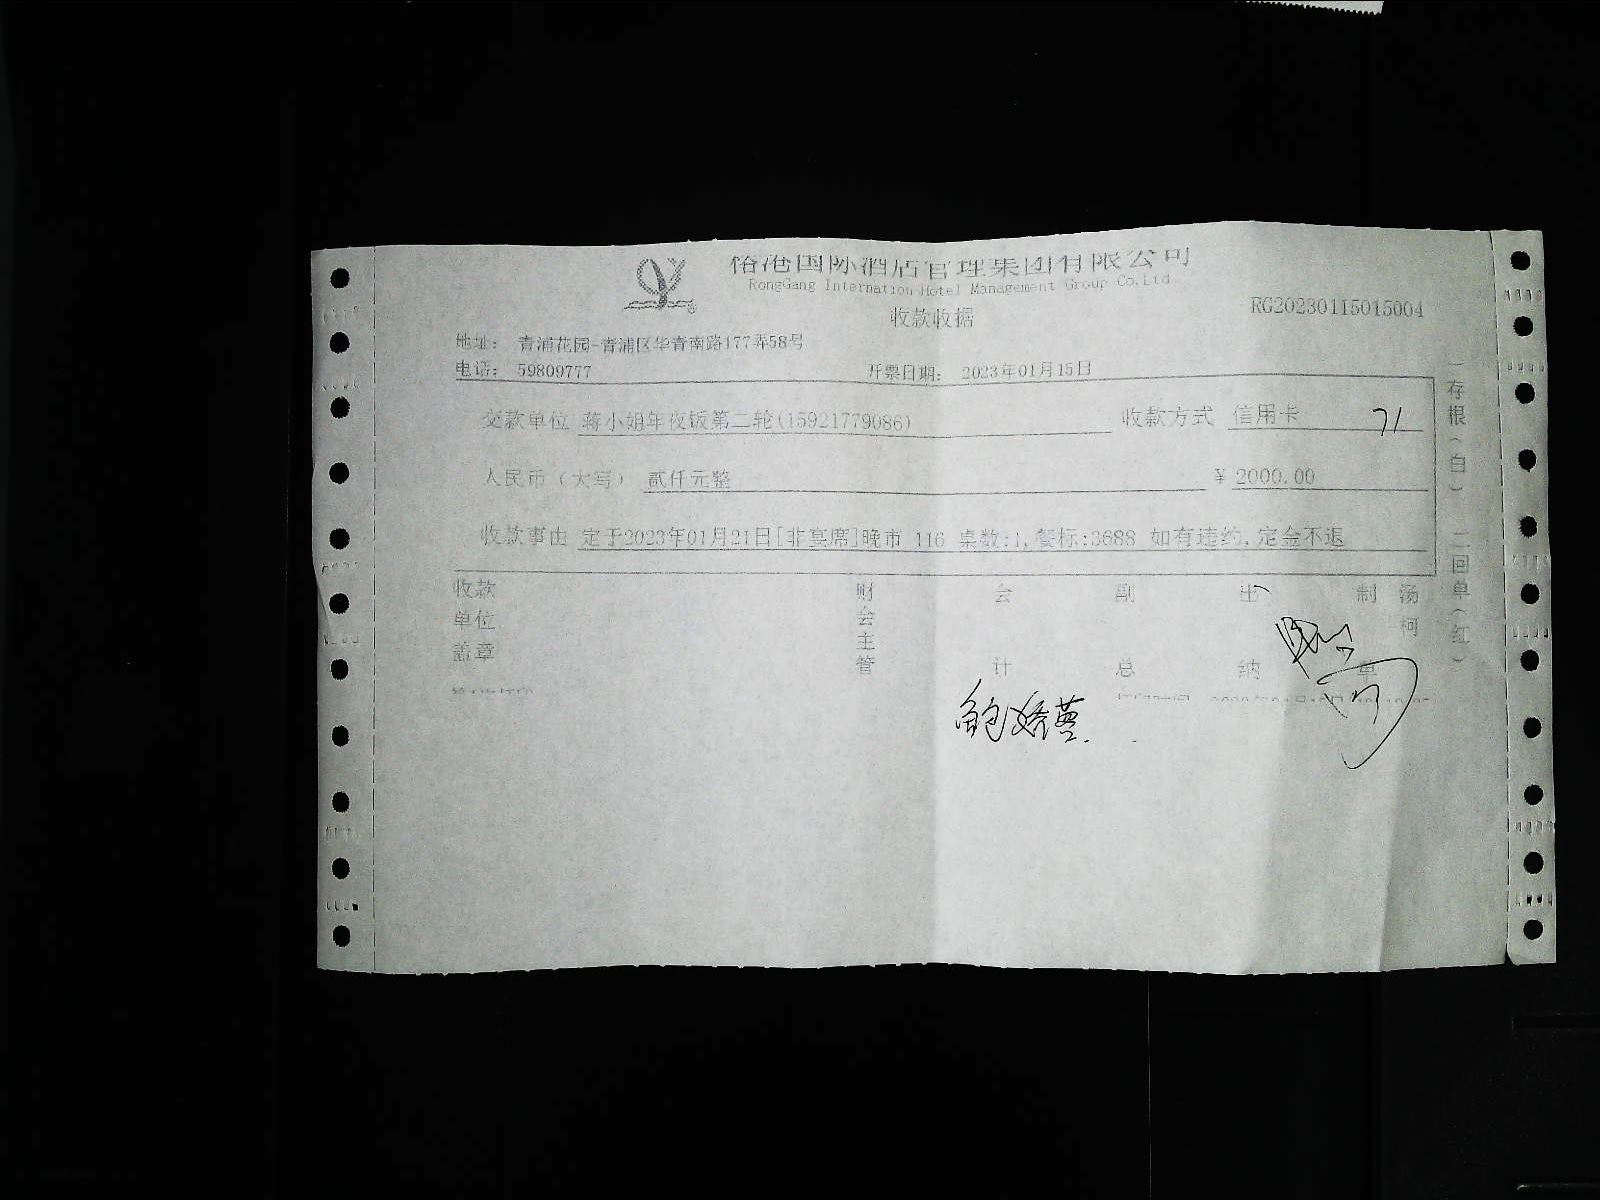 裕港国际酒店管理集团有限公司
RongGang Internation Hotel Management Group Co.Ltd.
收款收据
RG20230115015004
地址： 青浦花园-青浦区华青南路177弄58号
电话： 59809777
开票日期： 2023年01月15日
交款单位 蒋小姐年夜饭第二轮(15921779086)
收款方式 信用卡 71
人民币（大写） 贰仟元整
¥ 2000.00
收款事由 定于2023年01月21日[非宴席]晚市 116 桌数:1,餐标:3688 如有违约,定金不退
收款单位盖章
财会主管
会计
副总
出纳
制单
汤柯
（存根（白） 二回单（红）